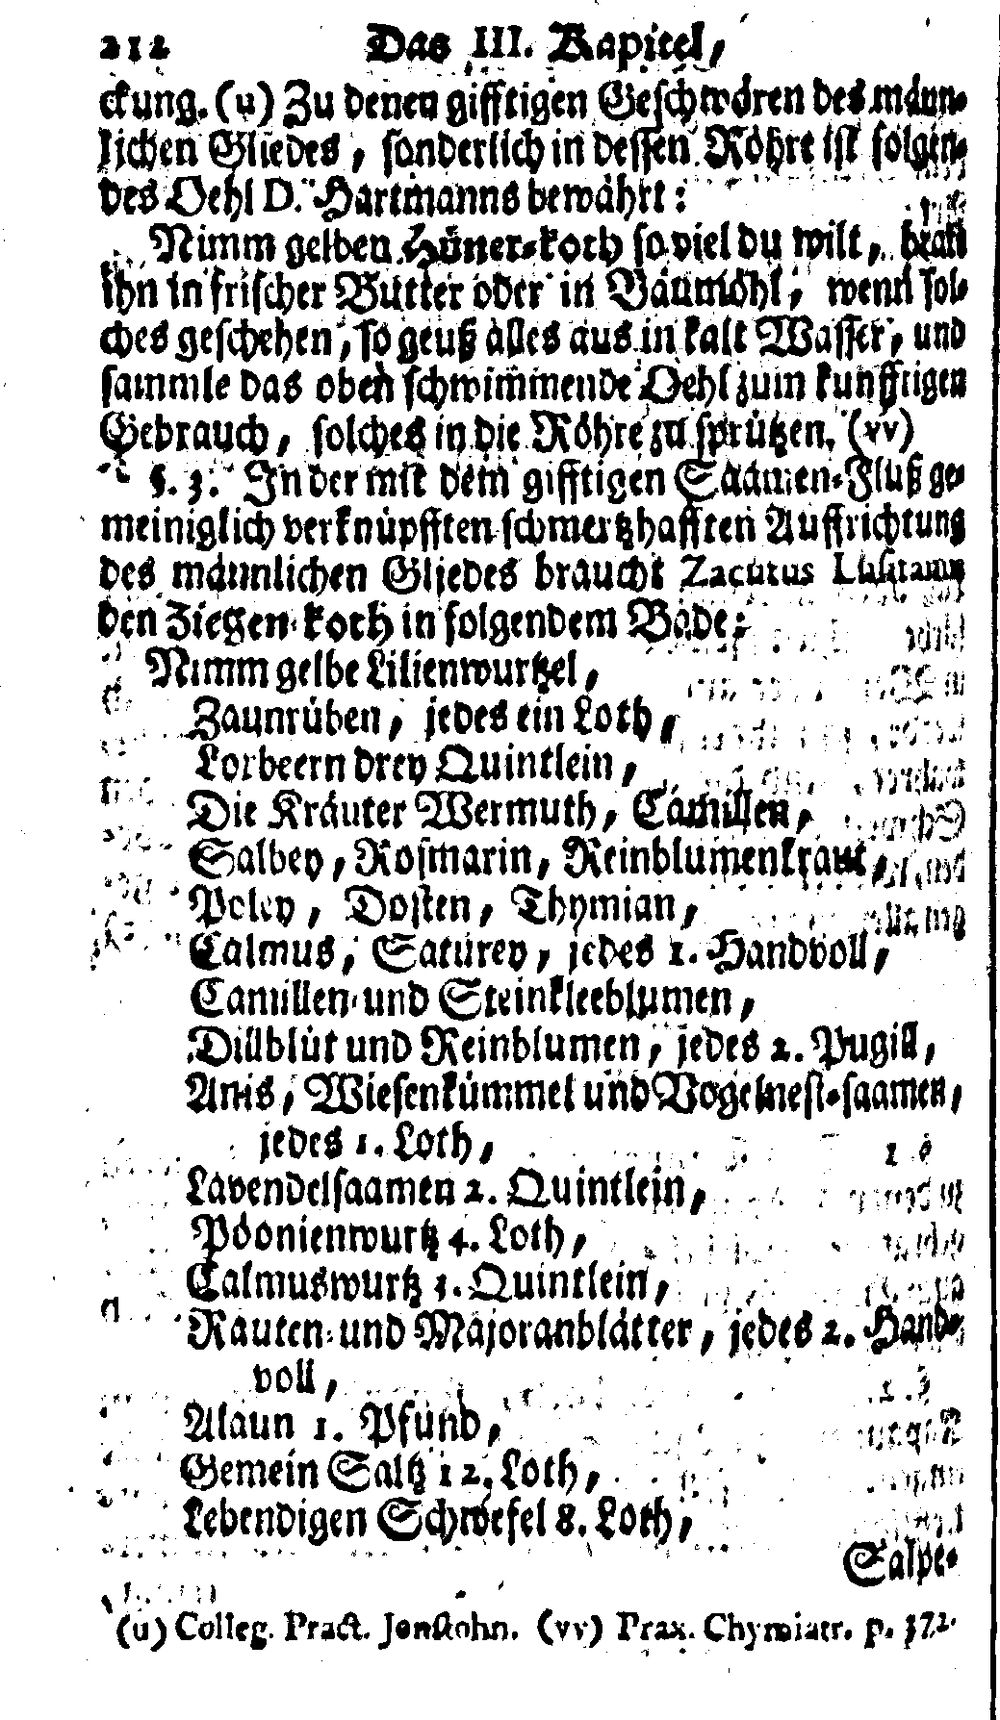 212 Das III. Kapitel,
ckung. (u) Zu denen gifftigen Geschwören des männ-
lichen Gliedes, sonderlich in dessen Röhre ist folgen-
des Oehl D. Hartmanns bewährt:
Nimm gelben Hüner-koth so viel du wilt, brat
ihn in frischer Butter oder in Baumöhl, wenn sol-
ches geschehen, so geuß alles aus in kalt Wasser, und
sammle das oben schwimmende Oehl zum kunfftigen
Gebrauch, solches in die Röhre zu sprützen. (vv)
§. 3. In der mit dem gifftigen Saamen-Fluß ge-
meiniglich verknüpfften schmertzhafften Auffrichtung
des männlichen Gliedes braucht Zacutus Lusitanus
den Ziegen-koth in folgendem Bade:
Nimm gelbe Lilienwurtzel,
Zaunrüben, jedes ein Loth,
Lorbeern drey Quintlein,
Die Kräuter Wermuth, Camillen,
Salbey, Rosmarin, Reinblumenkraut,
Poley, Dosten, Thymian,
Calmus, Saturey, jedes 1. Handvoll,
Camillen-und Steinkleeblumen,
Dillblüt und Reinblumen, jedes 2. Pugill,
Anis, Wiesenkümmel und Vogelnest-saamen,
jedes 1. Loth,
Lavendelsaamen 2. Quintlein,
Pöonienwurtz 4. Loth,
Calmuswurtz 1. Quintlein,
Rauten-und Majoranblätter, jedes 2. Hand-
voll,
Alaun 1. Pfund,
Gemein Saltz 12. Loth,
Lebendigen Schwefel 8. Loth,
Salpe-
(u) Colleg. Pract. Jonstohn. (vv) Prax. Chymiatr. p. 372.